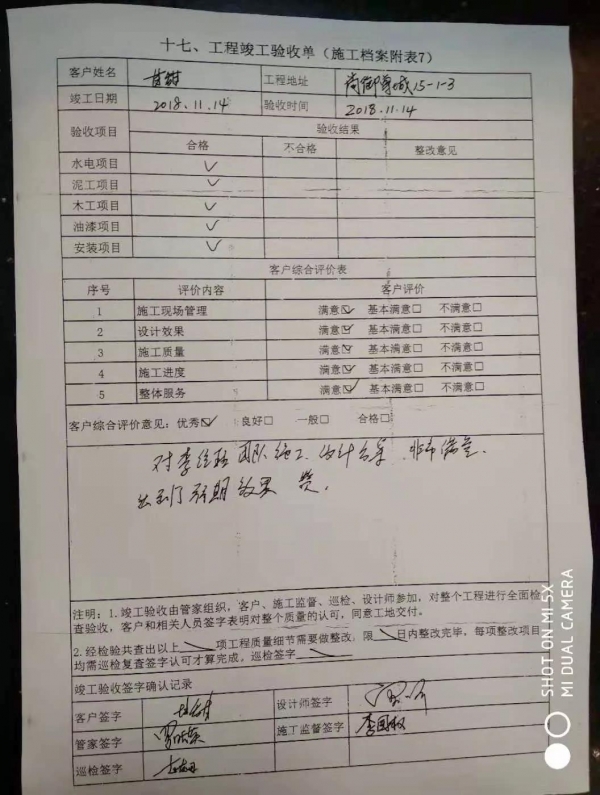 十七、工程竣工验收单（施工档案附表7）
客户姓名 工程地址 15-1-3
竣工日期 2018.11.14 验收时间 2018.11.14
验收项目 验收结果
合格 不合格 整改意见
水电项目 ✓
泥工项目 ✓
木工项目 ✓
油漆项目 ✓
安装项目 ✓
客户综合评价表
序号 评价内容 客户评价
1 施工现场管理 满意☑ 基本满意□ 不满意□
2 设计效果 满意☑ 基本满意□ 不满意□
3 施工质量 满意☑ 基本满意□ 不满意□
4 施工进度 满意☑ 基本满意□ 不满意□
5 整体服务 满意☑ 基本满意□ 不满意□
客户综合评价意见：优秀☑ 良好□ 一般□ 合格□
对李 团队施工、设计 非常满意
到了预期效果 赞.
注明：1.竣工验收由管家组织，客户、施工监督、巡检、设计师参加，对整个工程进行全面检
查验收，客户和相关人员签字表明对整个质量的认可，同意工地交付。
2.经检验共查出以上 项工程质量细节需要做整改，限 日内整改完毕，每项整改项目
均需巡检复查签字认可才算完成。巡检签字
竣工验收签字确认记录
客户签字 设计师签字
管家签字 施工监督签字 李国权
巡检签字
SHOT ON MI 5X
MI DUAL CAMERA